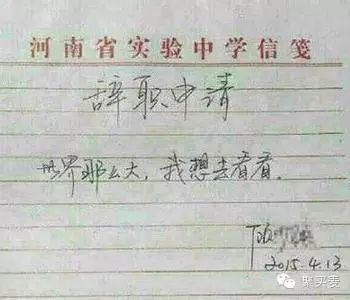 河南省实验中学信笺
辞职申请
世界那么大，我想去看看。
2015.4.13
聚买麦